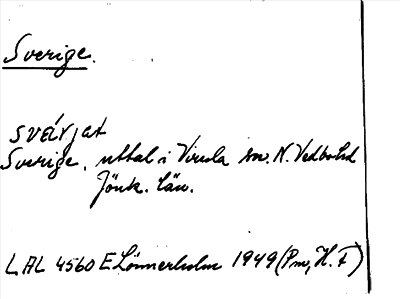 Sverige.
svärjat
Sverige. uttal i Vireda sn. N. Vedbo hd
Jönk. län.
LAL 4560 E Lönnerholm 1949 (Pm, H. F)